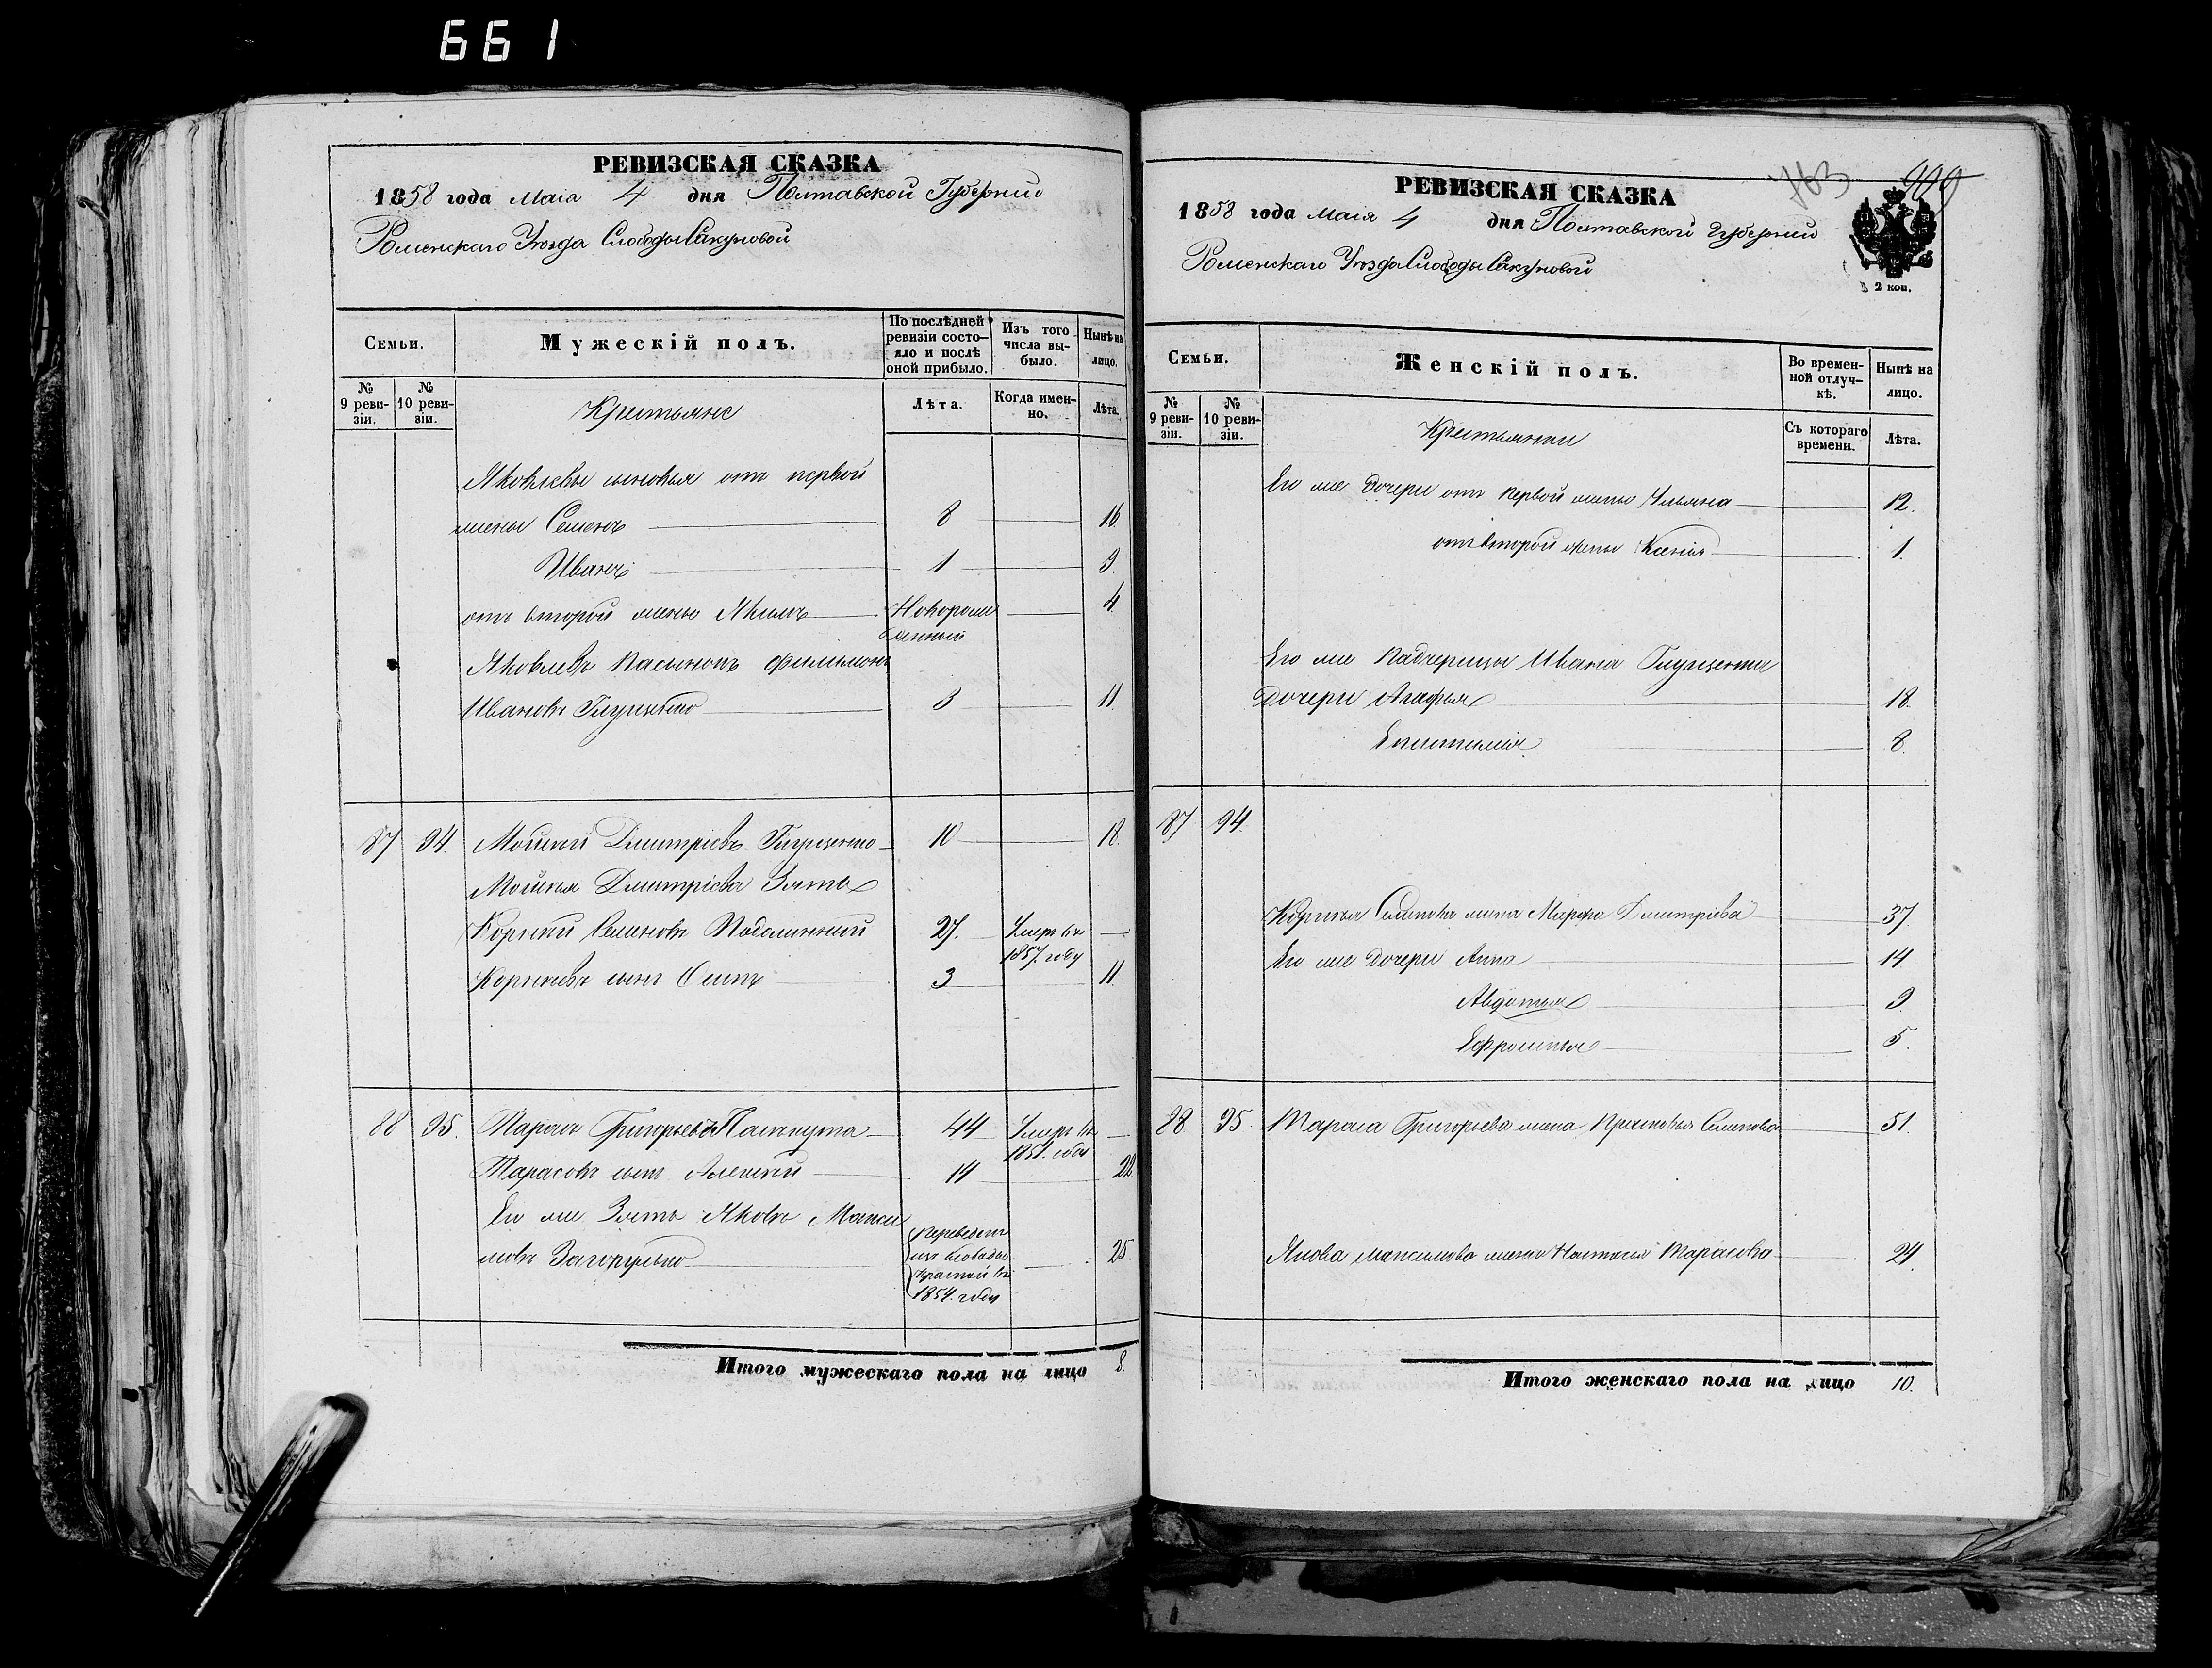 661
РЕВИЗСКАЯ СКАЗКА
1858 года Маія 4 дня Полтавской Губерніи
Роменскаго Уѣзда Слободы Сакуновой
Семьи.
Мужескій полъ.
По послѣдней ревизіи состояло и послѣ оной прибыло.
Изъ того числа выбыло.
Нынѣ на лицо.
№ 9 ревизіи.
№ 10 ревизіи.
Крестьяне
Лѣта.
Когда именно.
Лѣта.
Яковлевы сыновья отъ первой
жены Семенъ 8 16.
Иванъ 1 9.
отъ второй жены Якимъ Новорож 4.
денный
Яковлевъ пасынокъ Филимонъ
Ивановъ Глущенко 3 11.
87 94. Мойсей Дмитріевъ Глущенко 10 18.
Мойсея Дмитріева Зять
Корней Семеновъ 27. Умеръ въ
1857. году
Корнеевъ сынъ Осипъ 3 11.
88 95. Тарасъ Григорьевъ 44 Умеръ въ
году
Тарасовъ сынъ Алексей 14 22.
Его же Зять Яковъ Макси
мовъ переведенъ
изъ слободы 25.
Красной въ
1854. году
Итого мужескаго пола на лицо 8.
763
РЕВИЗСКАЯ СКАЗКА
1858 года Маія 4 дня Полтавской Губерніи
Роменскаго Уѣзда Слободы Сакуновой
2 коп.
Семьи.
Женскій полъ.
Во временной отлучкѣ.
Нынѣ на лицо.
№ 9 ревизіи.
№ 10 ревизіи.
Крестьянки
Съ котораго времени.
Лѣта.
Его же Дочери отъ первой жены Ульяна 12.
отъ второй жены Ксенія 1.
Его же Падчерицы Ивана Глущенка
Дочери Агафья 18.
8.
87 94.
Корнея Семенова жена Марфа Дмитріева 37
Его же Дочери Анна 14
Авдотья 9.
Ефросинья 5.
88 95. Тараса Григорьева жена Прасковья Семенова 51.
Якова Максимова жена Настасья Тарасова 24.
Итого женскаго пола на лицо 10.